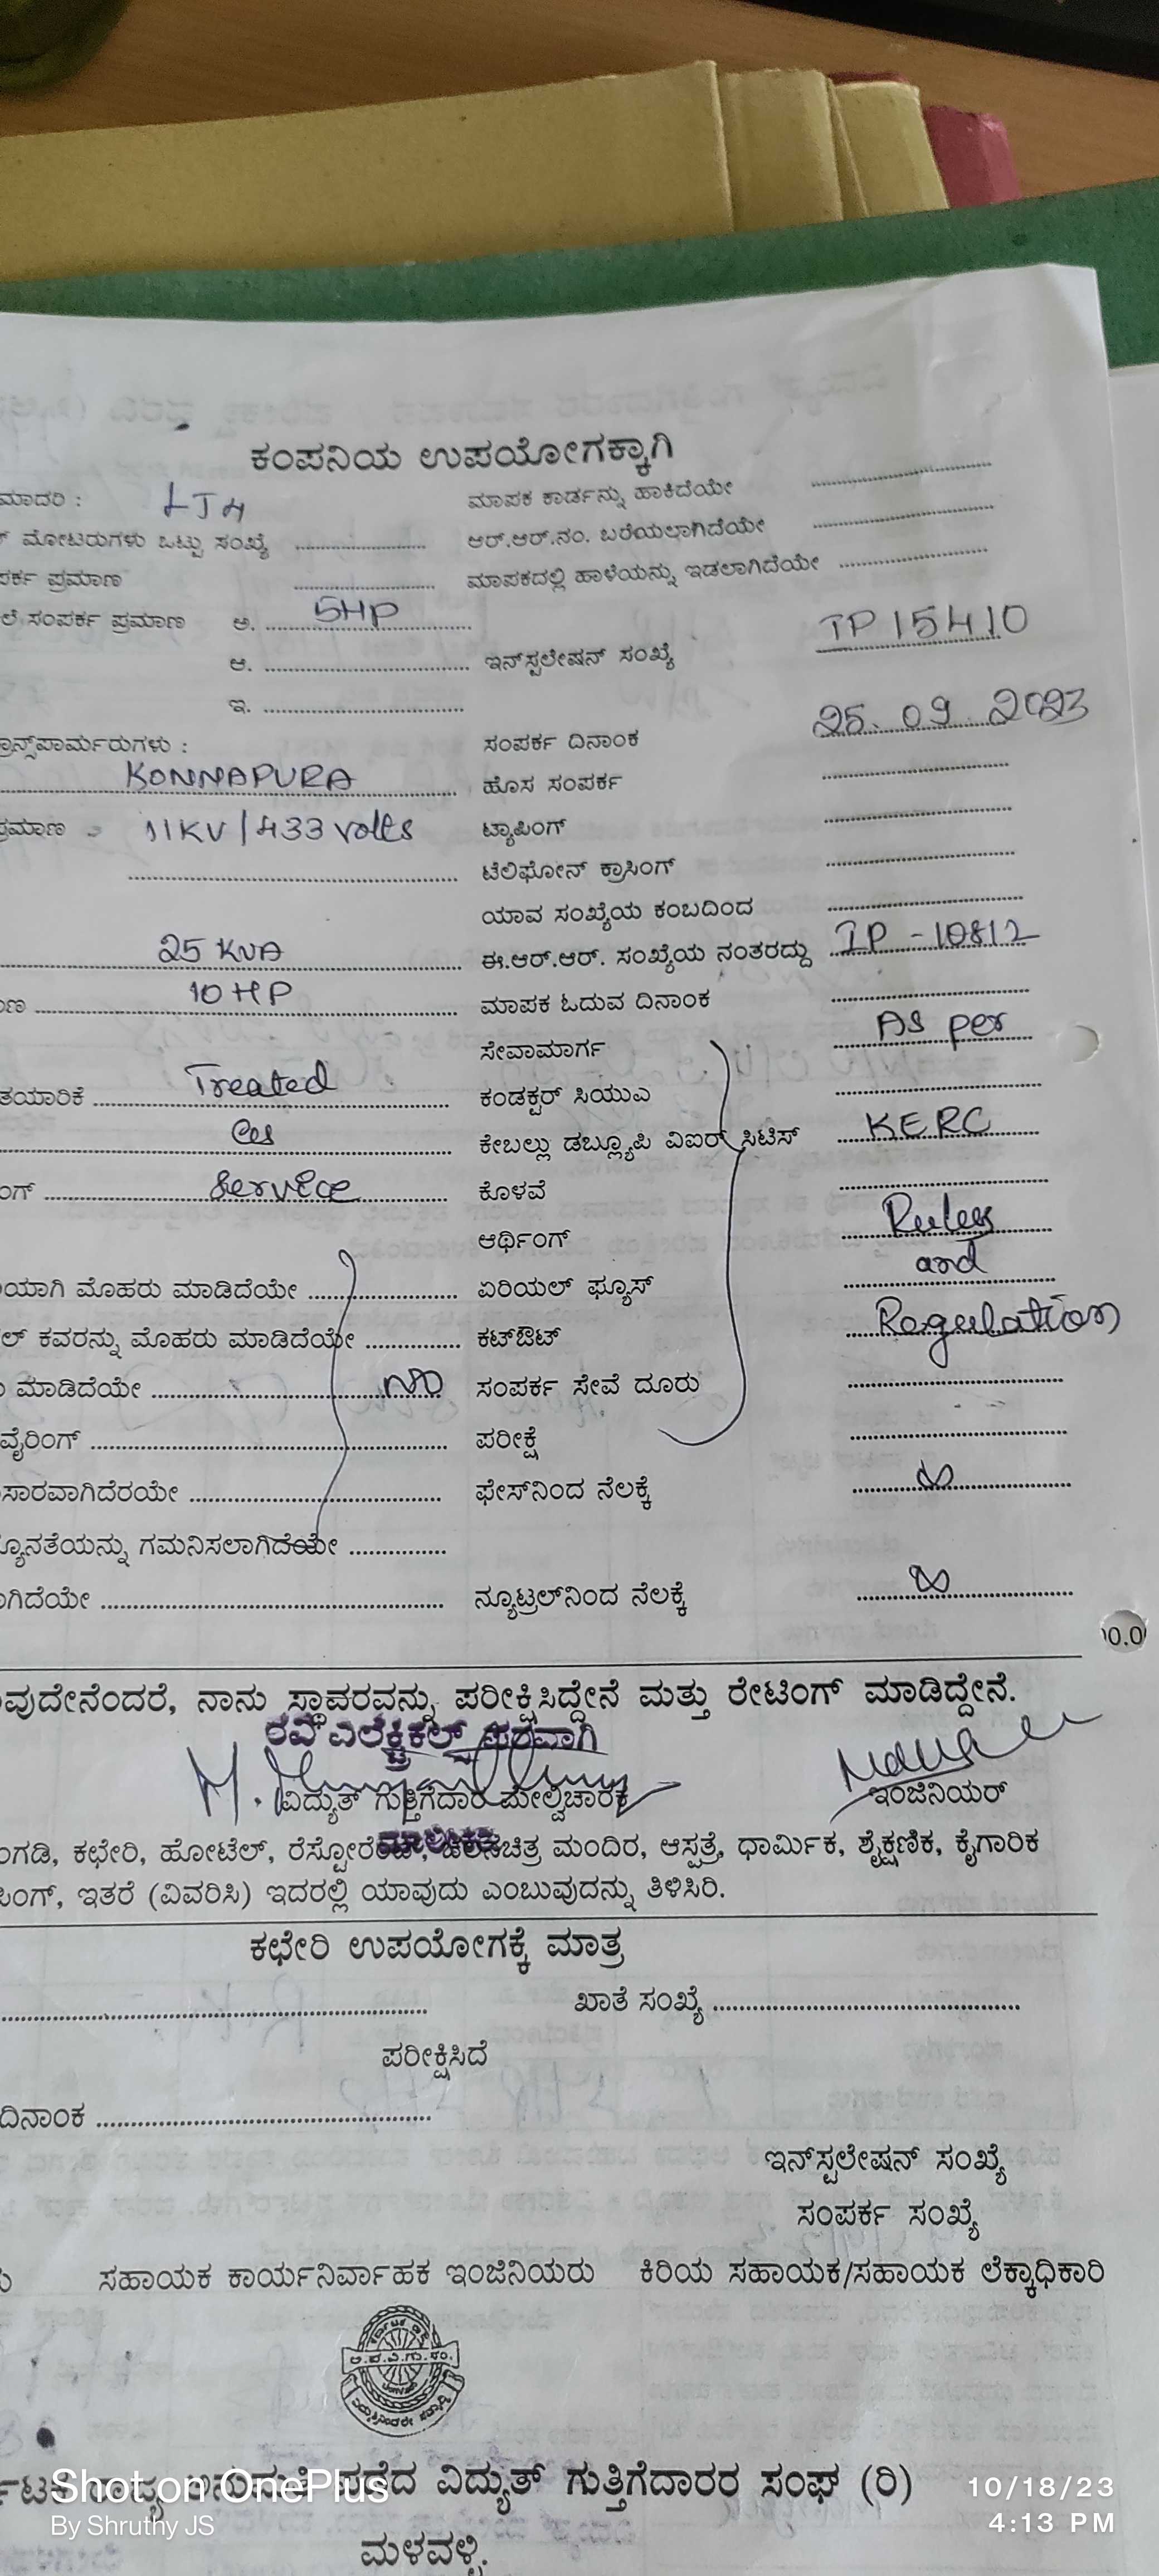 ಕಂಪನಿಯ ಉಪಯೋಗಕ್ಕಾಗಿ
ಮಾದರಿ : LT4 ಮಾಪಕ ಕಾರ್ಡನ್ನು ಹಾಕಿದೆಯೇ
ಮೋಟರುಗಳು ಒಟ್ಟು ಸಂಖ್ಯೆ ಆರ್.ಆರ್.ನಂ. ಬರೆಯಲಾಗಿದೆಯೇ
ಪ್ರಮಾಣ ಮಾಪಕದಲ್ಲಿ ಹಾಳೆಯನ್ನು ಇಡಲಾಗಿದೆಯೇ
ಸಂಪರ್ಕ ಪ್ರಮಾಣ ಅ. 5HP
IP 15410
ಆ. ಇನ್‌ಸ್ಟಲೇಷನ್ ಸಂಖ್ಯೆ
ಇ.
25.09.2023
ಸಂಪರ್ಕ ದಿನಾಂಕ
KONNAPURA ಹೊಸ ಸಂಪರ್ಕ
11KV/433 volts ಟ್ಯಾಪಿಂಗ್
ಟೆಲಿಫೋನ್ ಕ್ರಾಸಿಂಗ್
ಯಾವ ಸಂಖ್ಯೆಯ ಕಂಬದಿಂದ
25 KVA ಈ.ಆರ್.ಆರ್. ಸಂಖ್ಯೆಯ ನಂತರದ್ದು IP - 10812
10 HP ಮಾಪಕ ಓದುವ ದಿನಾಂಕ
ಸೇವಾಮಾರ್ಗ As per
ತಯಾರಿಕೆ Treated ಕಂಡಕ್ಟರ್ ಸಿಯುಎ
as ಕೇಬಲ್ಲು ಡಬ್ಲ್ಯೂಪಿ ವಿಐಆರ್ ಸಿಟಿಸ್ KERC
Service ಕೊಳವೆ
ಆರ್ಥಿಂಗ್ Rules
and
ಮೊಹರು ಮಾಡಿದೆಯೇ ಏರಿಯಲ್ ಫ್ಯೂಸ್
ಕವರನ್ನು ಮೊಹರು ಮಾಡಿದೆಯೇ ಕಟ್‌ಔಟ್ Regulation
ಮಾಡಿದೆಯೇ ಸಂಪರ್ಕ ಸೇವೆ ದೂರು
ವೈರಿಂಗ್ ಪರೀಕ್ಷೆ
ಫೇಸ್‌ನಿಂದ ನೆಲಕ್ಕೆ ∞
ಗಮನಿಸಲಾಗಿದೆಯೇ
ನ್ಯೂಟ್ರಲ್‌ನಿಂದ ನೆಲಕ್ಕೆ ∞
ನಾನು ಸ್ಥಾವರವನ್ನು ಪರೀಕ್ಷಿಸಿದ್ದೇನೆ ಮತ್ತು ರೇಟಿಂಗ್ ಮಾಡಿದ್ದೇನೆ.
ರವಿ ಎಲೆಕ್ಟ್ರಿಕಲ್ಸ್ ಪರವಾಗಿ
ವಿದ್ಯುತ್ ಗುತ್ತಿಗೆದಾರ ಮೇಲ್ವಿಚಾರಕ ಇಂಜಿನಿಯರ್
ಕಛೇರಿ, ಹೋಟೆಲ್, ಮಂದಿರ, ಆಸ್ಪತ್ರೆ, ಧಾರ್ಮಿಕ, ಶೈಕ್ಷಣಿಕ, ಕೈಗಾರಿಕ
ಇತರೆ (ವಿವರಿಸಿ) ಇದರಲ್ಲಿ ಯಾವುದು ಎಂಬುವುದನ್ನು ತಿಳಿಸಿರಿ.
ಕಛೇರಿ ಉಪಯೋಗಕ್ಕೆ ಮಾತ್ರ
ಖಾತೆ ಸಂಖ್ಯೆ
ಪರೀಕ್ಷಿಸಿದೆ
ದಿನಾಂಕ
ಇನ್‌ಸ್ಟಲೇಷನ್ ಸಂಖ್ಯೆ
ಸಂಪರ್ಕ ಸಂಖ್ಯೆ
ಸಹಾಯಕ ಕಾರ್ಯನಿರ್ವಾಹಕ ಇಂಜಿನಿಯರು ಕಿರಿಯ ಸಹಾಯಕ/ಸಹಾಯಕ ಲೆಕ್ಕಾಧಿಕಾರಿ
ವಿದ್ಯುತ್ ಗುತ್ತಿಗೆದಾರರ ಸಂಘ (ರಿ)
ಮಳವಳ್ಳಿ.
Shot on OnePlus
By Shruthy JS
10/18/23
4:13 PM